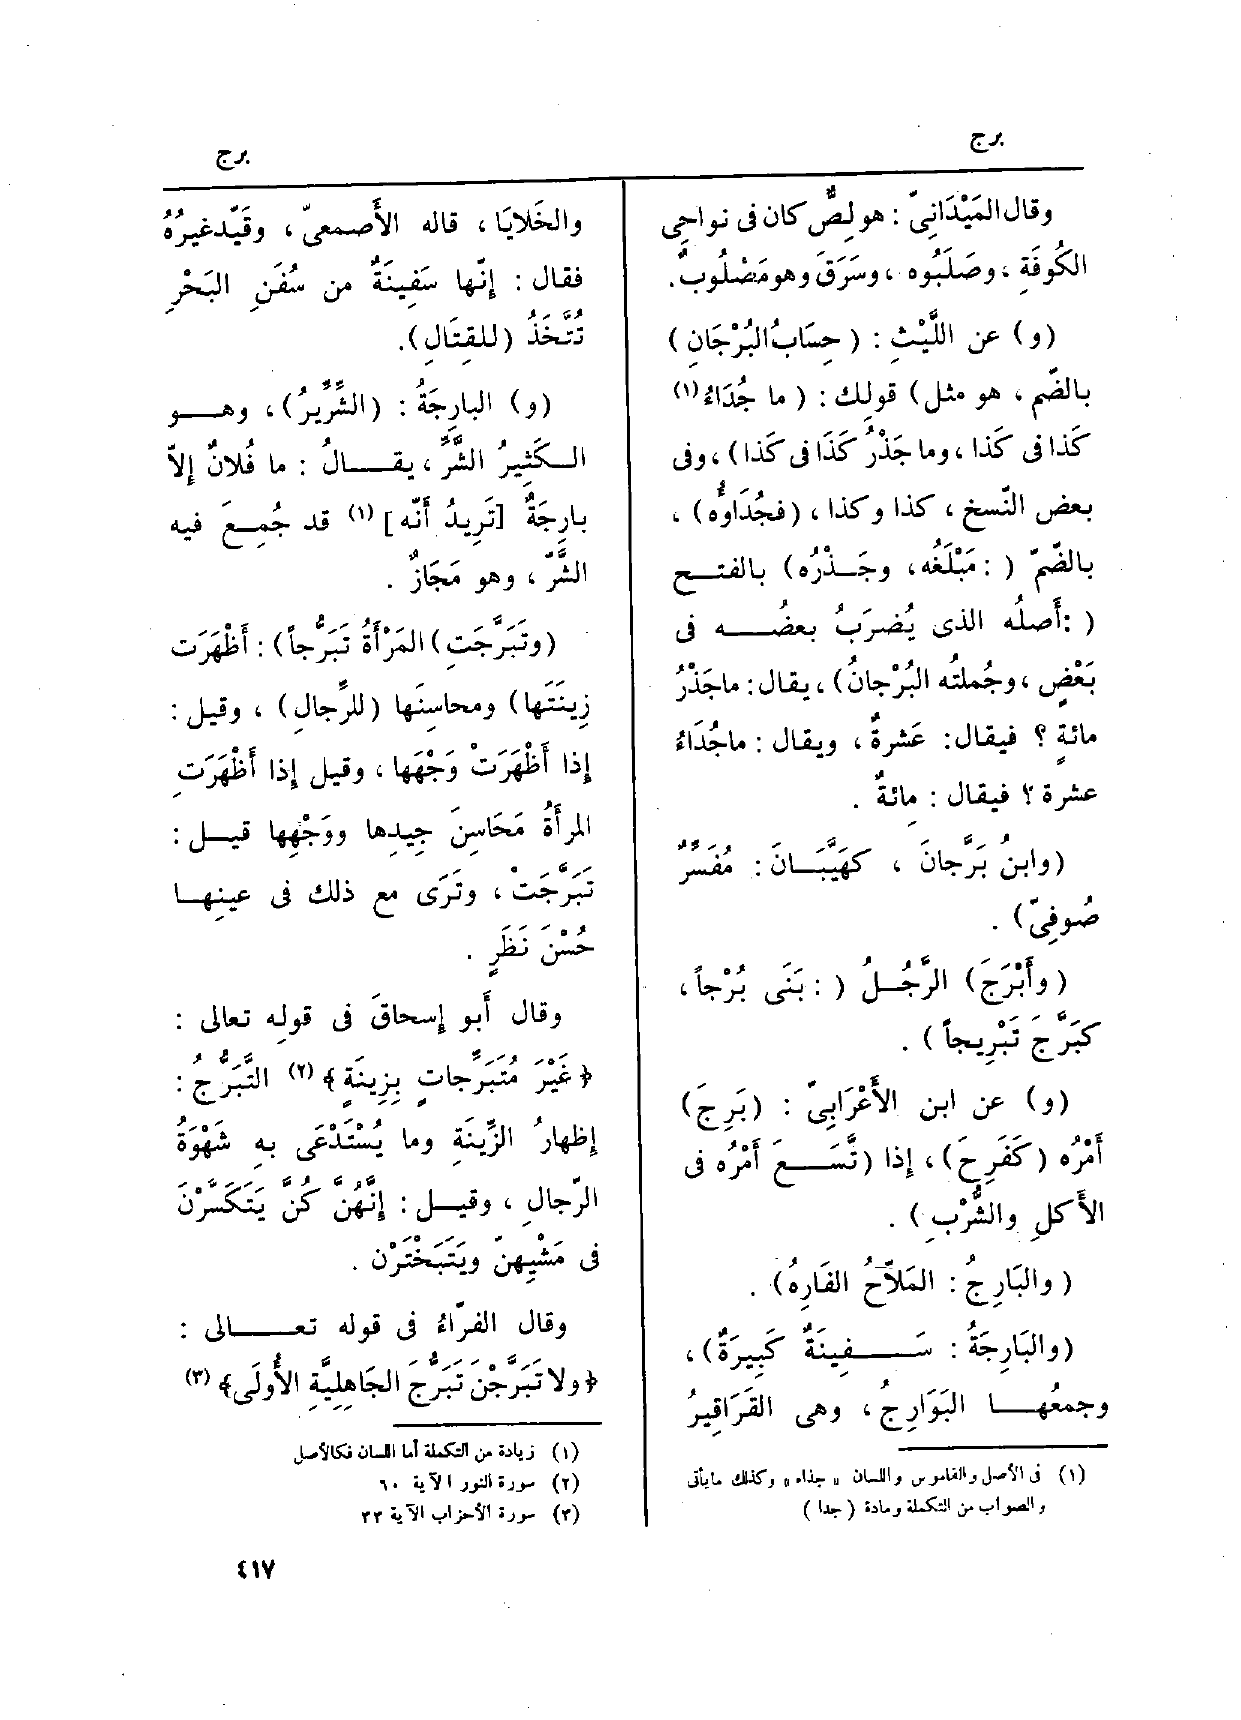 برج
وقال المَيْدَانِىّ : هو لِصٌّ كان فى نواحِى
الكُوفَةِ ، وصَلَبُوه ، وسَرَقَ وهو مَصْلُوبٌ.
(و) عن اللَّيْثِ : (حِسَابُ البُرْجَانِ)
بالضّم ، هو مثل) قولِك : (ما جُدَاءُ(١)
كَذا فى كَذا ، وما جَذْرُ كَذَا فى كَذا) ، وفى
بعض النّسخ ، كذا وكذا ، (فجُدَاوُه) ،
بالضّمّ ( : مَبْلَغُه ، وجَـذْرُه) بالفتـح
( : أَصلُه الذى يُضرَبُ بعضُـه فى
بَعْضٍ ، وجُملتُه البُرْجانُ) ، يقال : ما جَذْرُ
مائةٍ ؟ فيقال : عَشرةٌ ، ويقال : ما جُدَاءُ
عشرة ؟ فيقال : مِائةٌ .
(وابنُ بَرَّجانَ ، كهَيَّبَـانَ : مُفَسِّرٌ
صُوفِىّ) .
(وأَبْرَجَ) الرَّجُـلُ ( : بَنَى بُرْجاً ،
كبَرَّجَ تَبْرِيجاً) .
(و) عن ابن الأَعْرَابِىّ : (بَرِجَ)
أَمْرُه (كَفَرِحَ) ، إذا (تَّسَـعَ أَمْرُه فى
الأَكلِ والشُّرْبِ) .
(والبَارِجُ : المَلاَّحُ الفَارِهُ) .
(والبَارِجَةُ : سَـفِينَةٌ كَبِيرَةٌ) ،
وجمعُهـا البَوَارِجُ ، وهى القَرَاقِيرُ
(١) فى الأصل والقاموس واللسان « جذاء » وكذلك ما يأتى
والصواب من التكملة ومادة (جدا)
برج
والخَلايَا ، قاله الأَصمعىّ ، وقَيَّد غيرُهُ
فقال : إنّها سَفِينَةٌ من سُفُنِ البَحْرِ
تُتَّخَذُ (للقِتَالِ).
(و) البارِجَةُ : (الشِّرِّيرُ) ، وهـو
الـكَثِيرُ الشَّرِّ ، يقـالُ : ما فُلانٌ إلاّ
بارِجَةٌ [تَرِيدُ أَنّه] (١) قد جُمِـعَ فيه
الشَّرّ ، وهو مَجَازٌ .
(وتَبَرَّجَتِ) المَرْأَةُ تَبَرُّجاً) : أَظْهَرَت
زِينَتَها) ومحاسِنَها (للرِّجالِ) ، وقيل :
إذا أَظْهَرَتْ وَجْهَها ، وقيل إذا أَظْهَرَتِ
المرأَةُ مَحَاسِنَ جِيدِها ووَجْهِها قيـل :
تَبَرَّجَتْ ، وتَرَى مع ذلك فى عينِهـا
حُسْنَ نَظَرٍ .
وقال أَبو إسحاقَ فى قولِه تعالى :
﴿غَيْرَ مُتَبَرِّجاتٍ بِزِينَةٍ﴾ (٢) التَّبَرُّجُ :
إظهارُ الزِّينَةِ وما يُسْتَدْعَى به شَهْوَةُ
الرّجالِ ، وقيـل : إنَّهُنّ كُنّ يَتَكَسَّرْنَ
فى مَشْيِهنّ ويَتَبَخْتَرْن .
وقال الفرّاءُ فى قوله تعـالى :
﴿ولا تَبَرَّجْنَ تَبَرُّجَ الجَاهِلِيَّةِ الأُولَى﴾ (٣)
(١) زيادة من التكملة أما اللسان فكالأصل
(٢) سورة النور الآية ٦٠
(٣) سورة الأحزاب الآية ٣٣
٤١٧